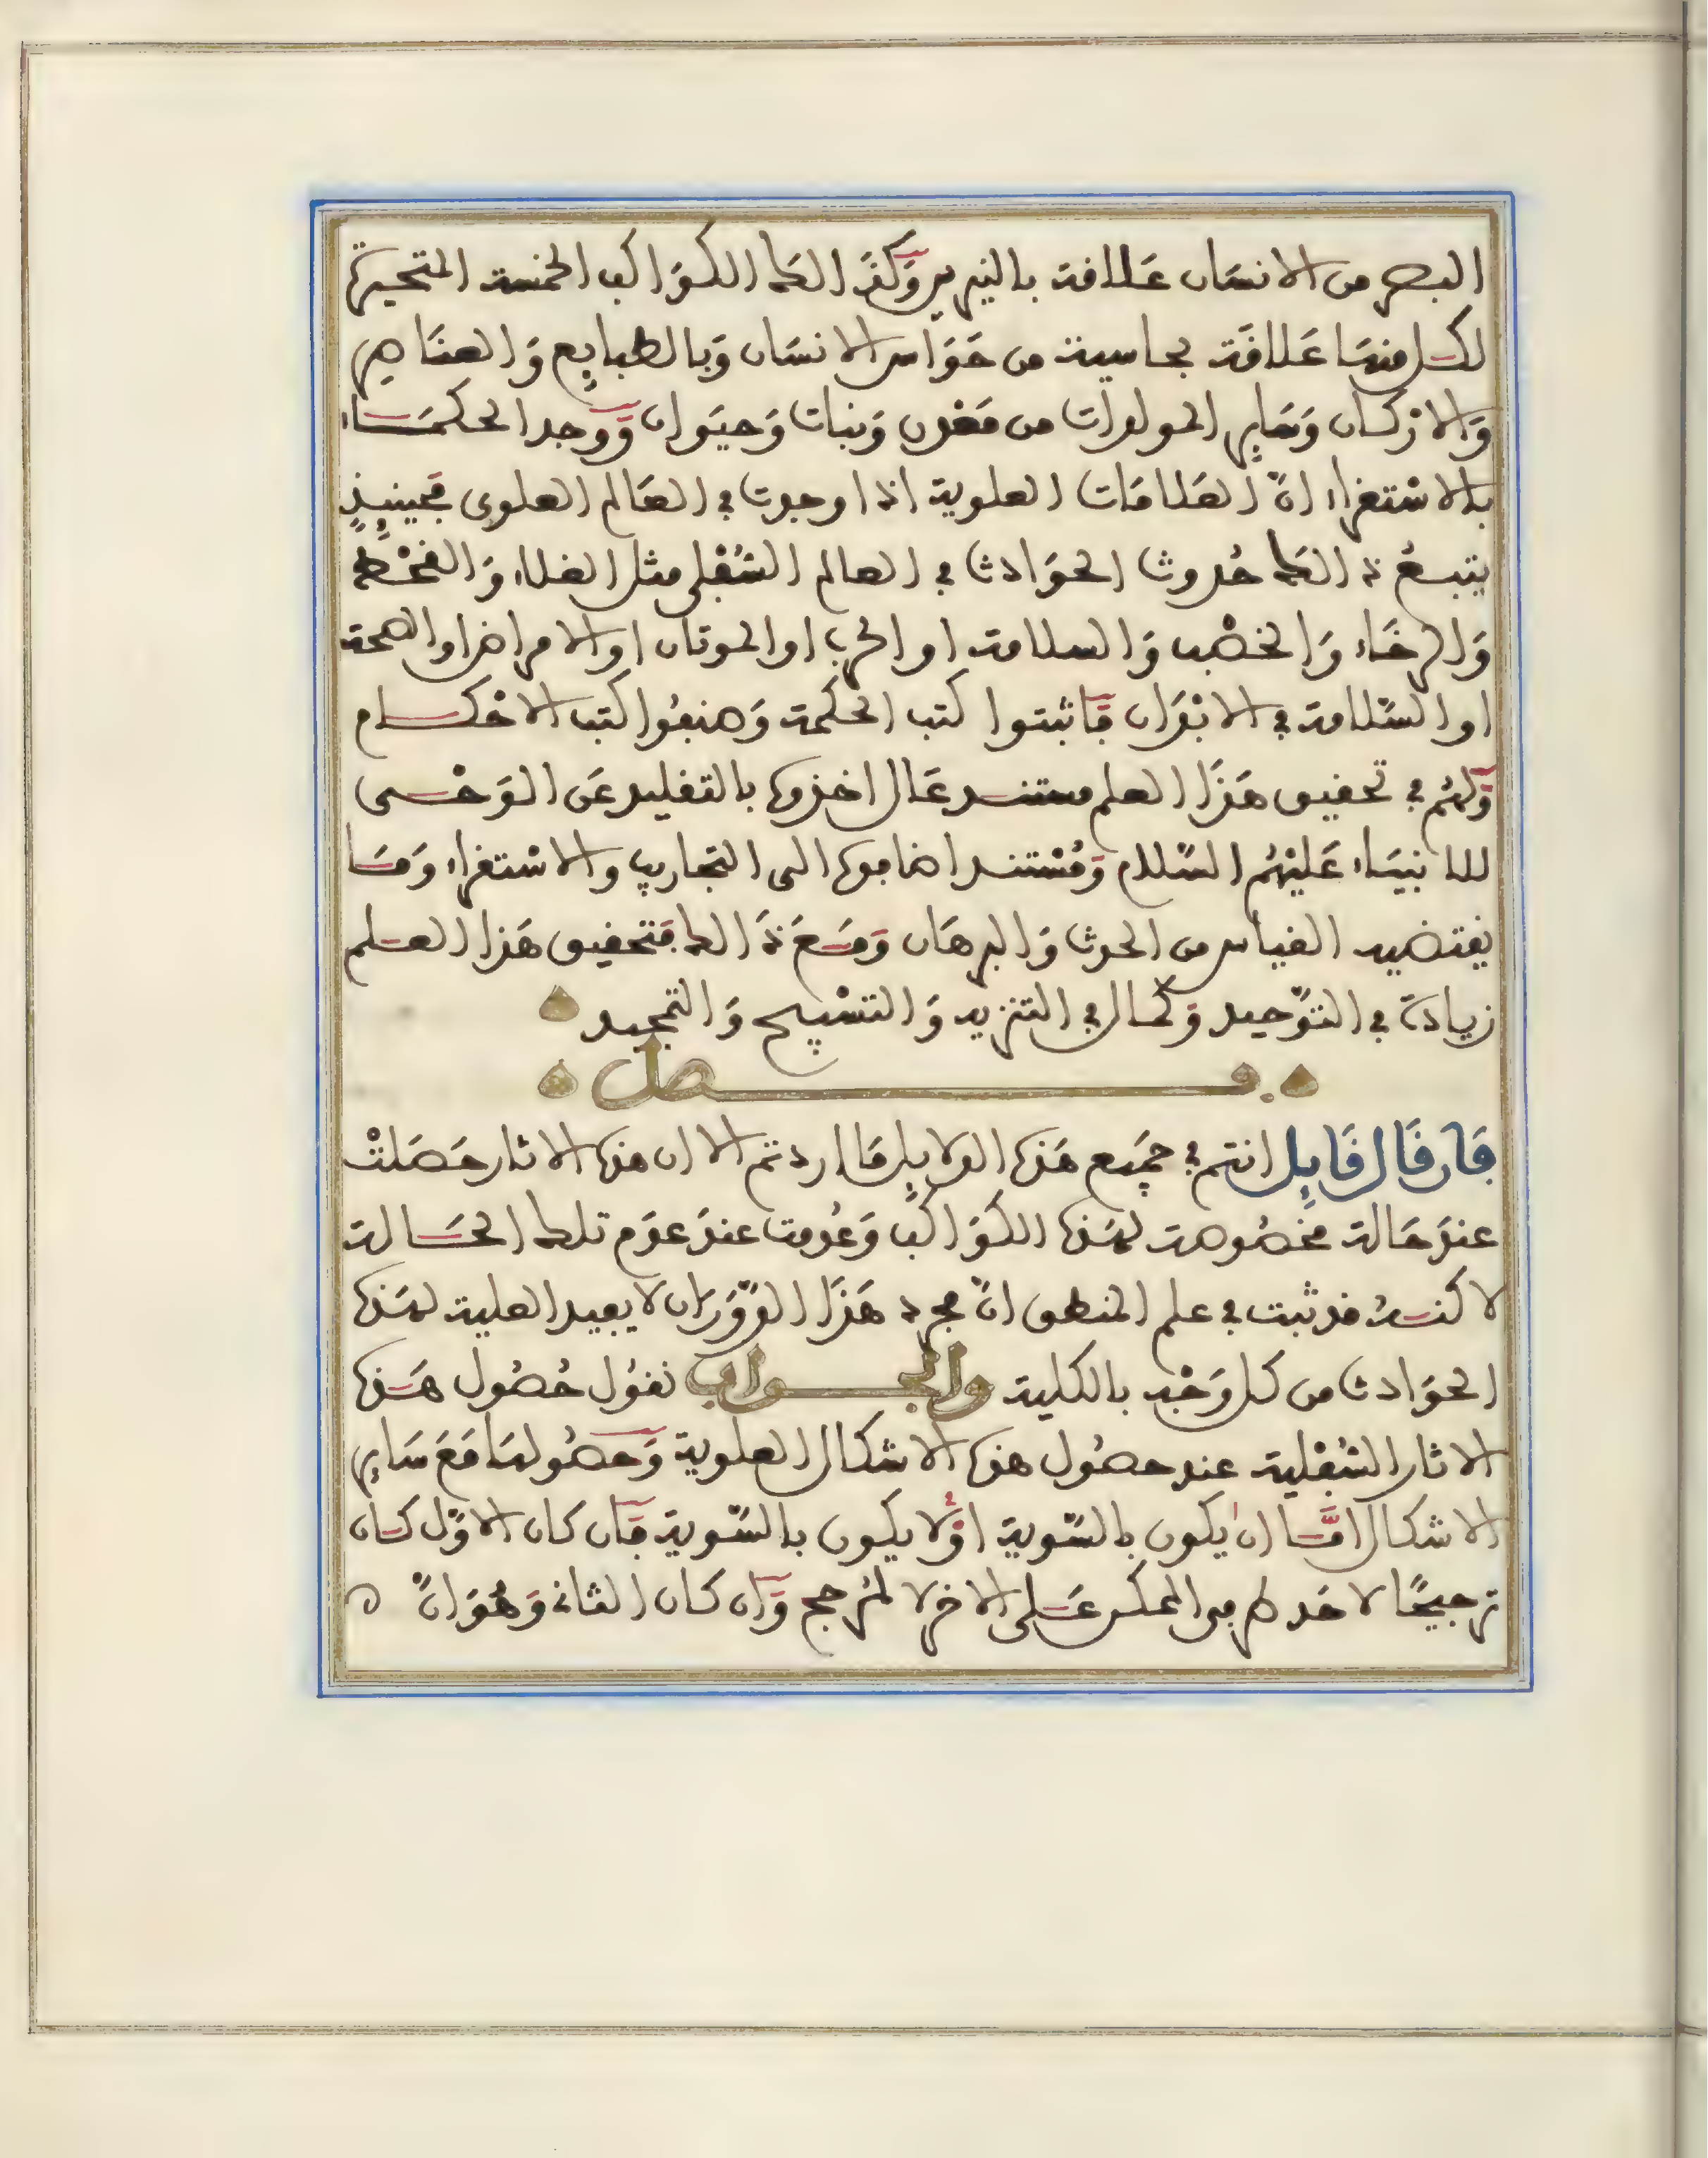 البصر من الانسَان عَلاقة بالنيرين وَكذَالك الكوَاكب الخمسة المتحيرة
لكل منهَا عَلاقَة بحاسية من حَوَاس الانسَان وَبالطبايِع وَالعنَاصِر
وَالارْكان وَسَايِر المولدات من مَعْدن وَنبات وَحيَوان وَوجد الحكمَاء
بالاسْتقراء انّ العَلامَات العلوية اذا وجدت في العَالم العلوى فحينيِذٍ
يتبعُ ذالكَ حُدوث الحوَادث في العالم السُفْلى مثل الغلاء وَالقحْط
وَالرخَاء وَالخصْب وَالسلامة او الحرب او الموتان او الامراض او الصحة
او السّلامة في الابْدَان فَاثبتوا كتب الحكمة وَصنفُوا كتب الاحْكام
وَلهُم في تحقيق هَذَا العلم مستند عَال اخذوه بالتقليد عَن الوَحْى
للانبيَاء عَليْهُم السّلام وَمُسْتند اضافوه الى التجارب والاسْتقراء وَمَا
يقتضيه القياس من الحدث وَالبرهَان وَمَعَ ذَالك فتحقيق هَذا العلم
زيادة في التوّحيد وَكمال في التنزيه وَالتسْبِيح وَالتمجيد
فصل
فَان قَال قَايِل انتم في جميَع هَذه الدلايِل مَا اردتم الا ان هذه الاثار حَصَلتْ
عندَ حَالة مخصُوصة لهَذه الكوَاكب وَعُدمت عندَ عدَم تلك الحَالة
لاكنهُ قد ثبت في علم المنطق انّ مجرد هَذَا الدّوَرَان لا يفيد العلية لهَذه
الحوَادث من كل وَجْه بالكلية والجواب نقوُل حُصُول هَذه
الاثار السُفْلية عند حصُول هذه الاشكال العلوية وَحصُولهَا مَعَ سَايِر
الاشكال امَّا ان يكون بالسّوية اوْ لا يكون بالسّوية فَان كان الاوّل كان
ترجيحًا لاحَد طرفى الممكن عَلى الاخر لا لمُرجح وَان كان الثانى وَهُوَ انّ ه